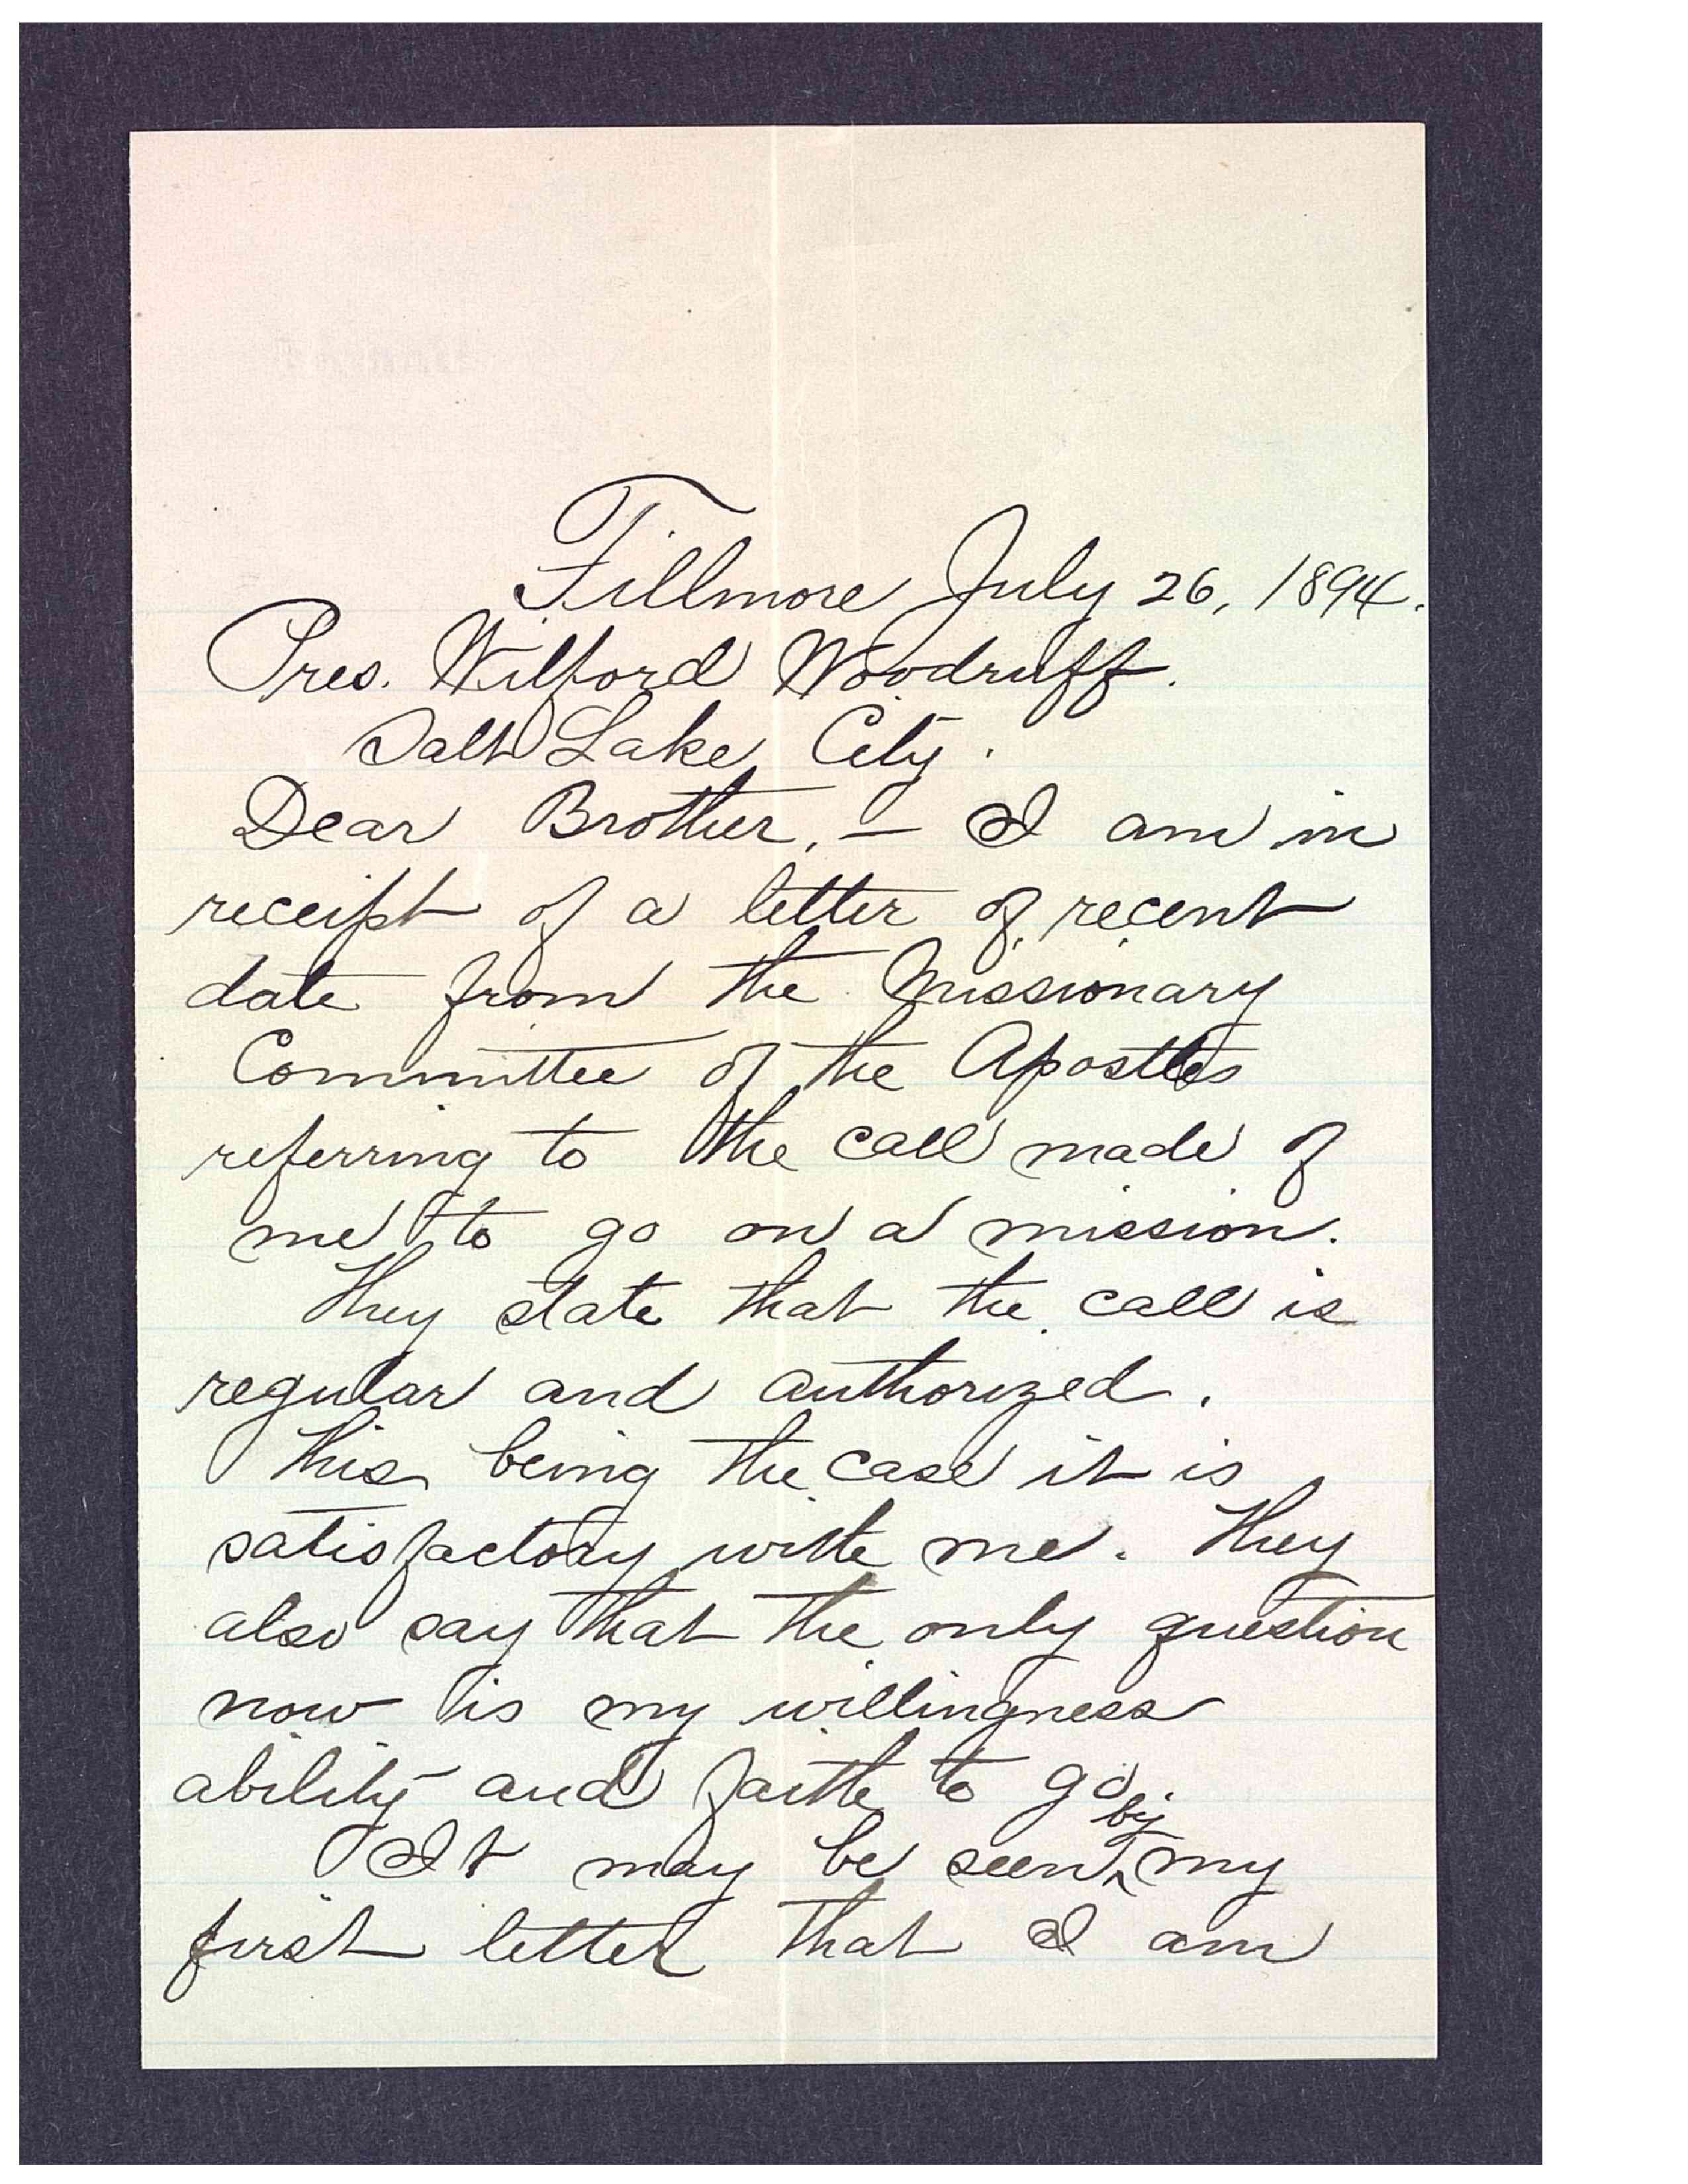 Fillmore July 26, 1894.
Pres. Wilford Woodruff.
Salt Lake City.
Dear Brother, – I am in
receipt of a letter of recent
date from the Missionary
Committee of the Apostles
referring to the call made of
me to go on a mission.
They state that the call is
regular and authorized.
This being the case it is
satisfactory with me. They
also say that the only question
now is my willingness
ability and faith to go.
It may be seen by my
first letter that I am